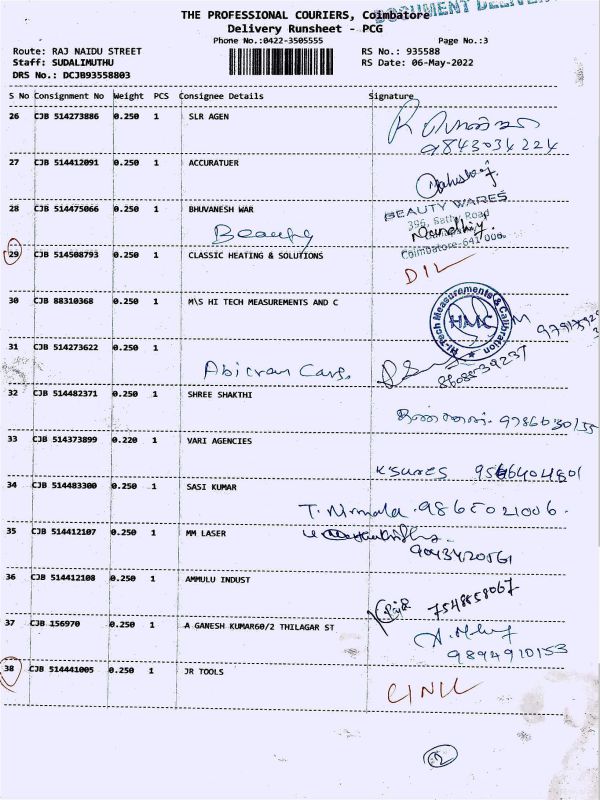 DOCUMENT DELIVER
THE PROFESSIONAL COURIERS, Coimbatore
Delivery Runsheet - PCG
Phone No.:0422-3505555
Page No.:3
Route: RAJ NAIDU STREET
RS No.: 935588
Staff: SUDALIMUTHU
RS Date: 06-May-2022
DRS No.: DCJB93558803
S No Consignment No Weight PCS Consignee Details Signature
26 CJB 514273886 0.250 1 SLR AGEN
9843034224
27 CJB 514412091 0.250 1 ACCURATUER
28 CJB 514475066 0.250 1 BHUVANESH WAR
BEAUTY WARES
396, Sathy Road
Coimbatore-641 006.
29 CJB 514508793 0.250 1 CLASSIC HEATING & SOLUTIONS
DIL
30 CJB 88310368 0.250 1 M\S HI TECH MEASUREMENTS AND C
Hi-Tech Measurements & Calibration
HMC
31 CJB 514273622 0.250 1
8608839237
32 CJB 514482371 0.250 1 SHREE SHAKTHI
9786030155
33 CJB 514373899 0.220 1 VARI AGENCIES
K'SURES
34 CJB 514483300 0.250 1 SASI KUMAR
T. Nirmala. 9865021006.
35 CJB 514412107 0.250 1 MM LASER
9043420561
36 CJB 514412108 0.250 1 AMMULU INDUST
7548858067
37 CJB 156970 0.250 1 A GANESH KUMAR60/2 THILAGAR ST
9894910153
38 CJB 514441005 0.250 1 JR TOOLS
2